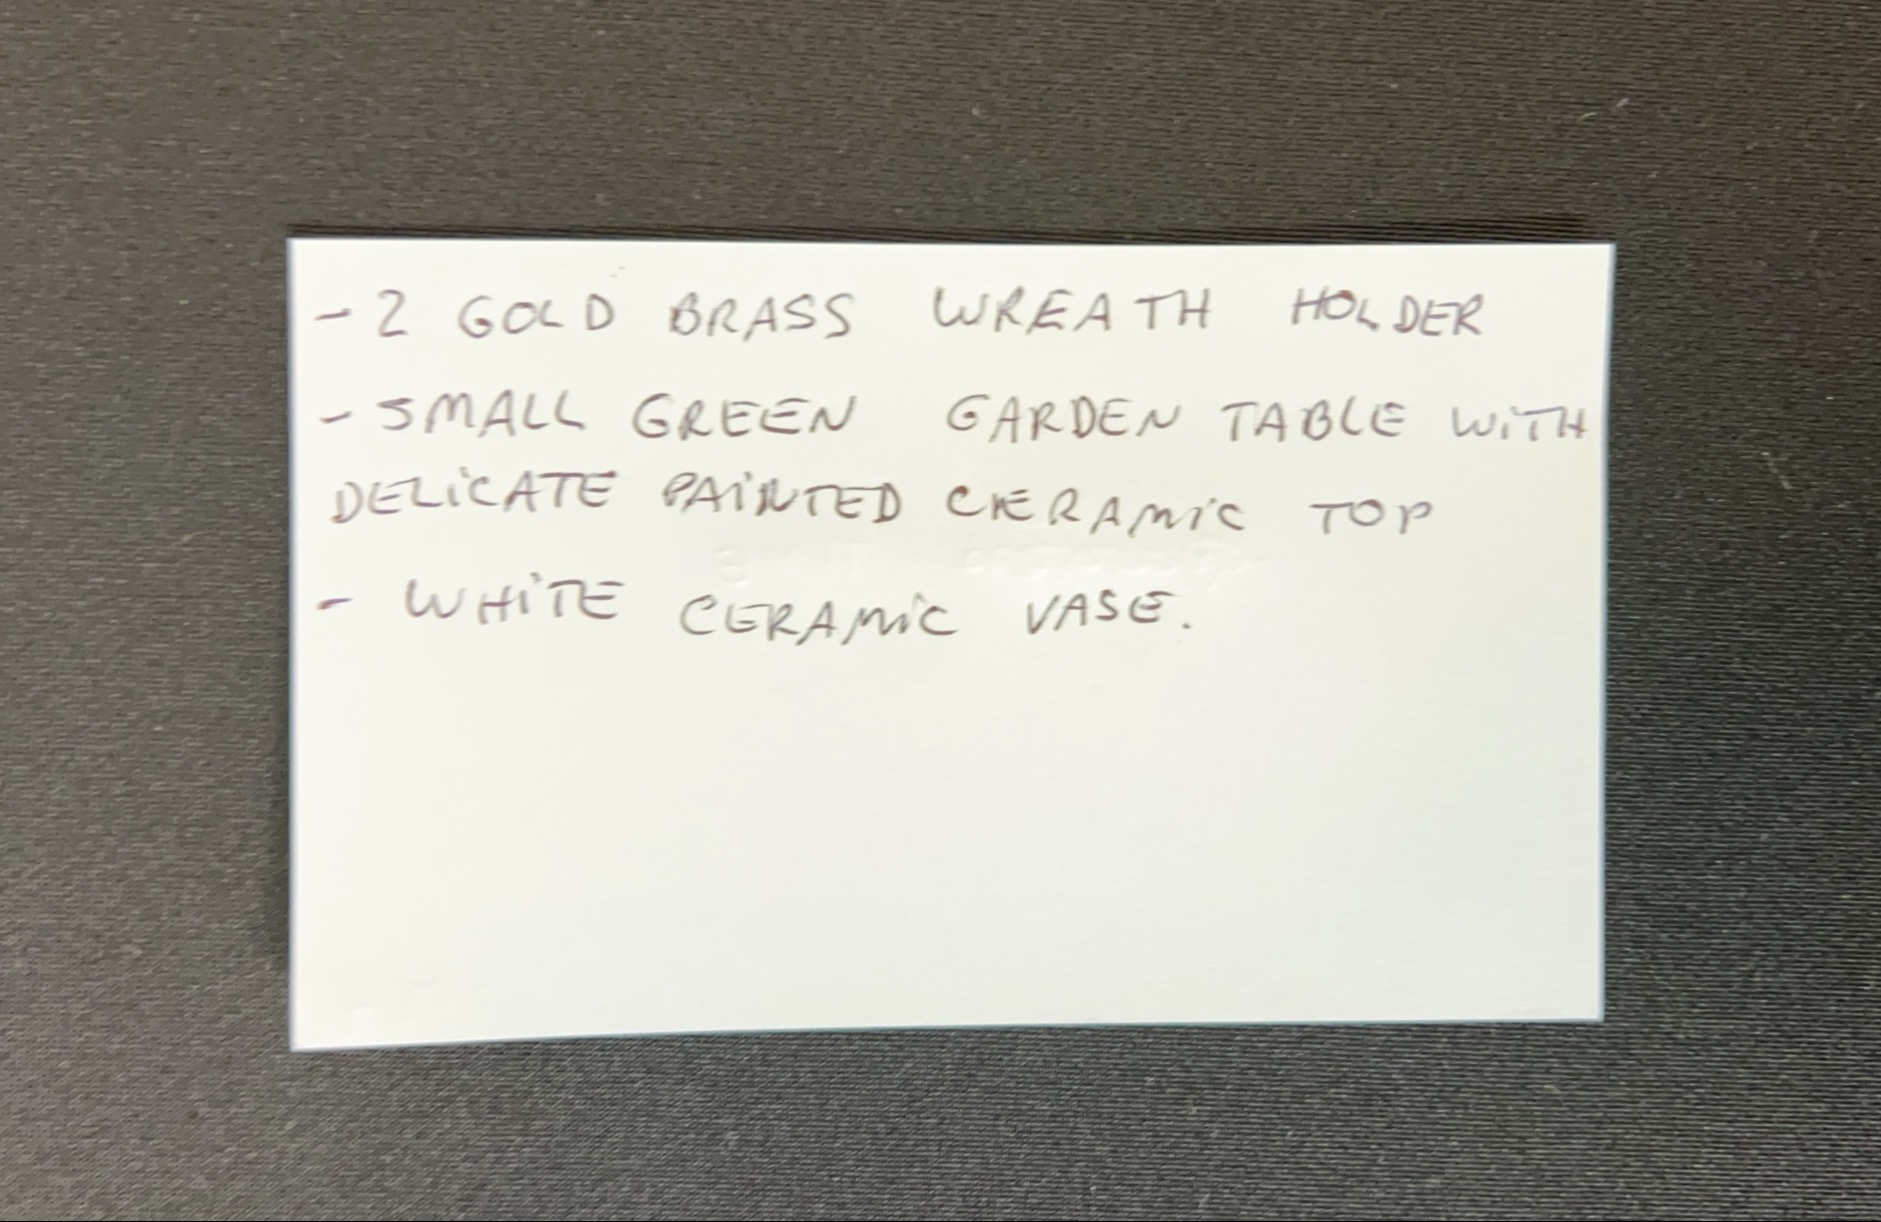 - 2 GOLD BRASS WREATH HOLDER
- SMALL GREEN GARDEN TABLE WiTH
DELiCATE PAiNTED CERAMiC TOP
- WHiTE CERAMiC VASE.